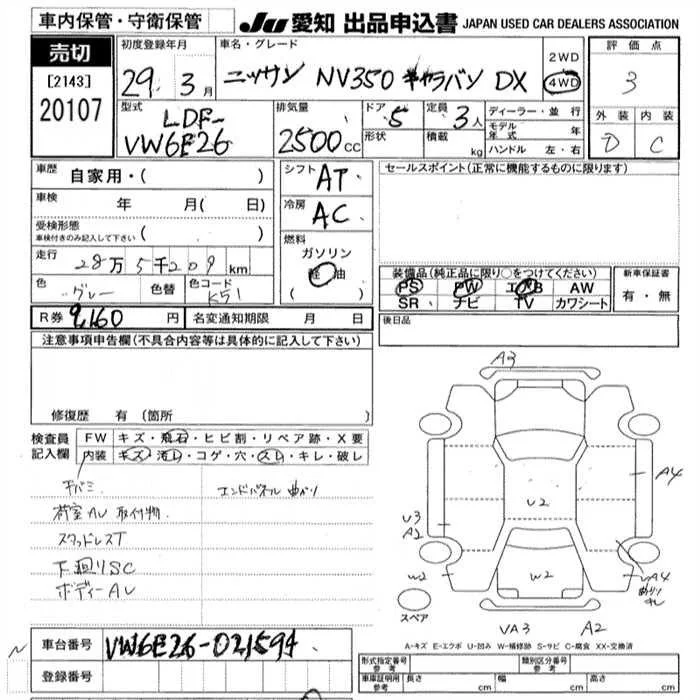 車内保管・守衛保管
JU 愛知 出品申込書 JAPAN USED CAR DEALERS ASSOCIATION
売切
[2143]
20107
初度登録年月
29年 3月
車名・グレード
ニッサン NV350 キャラバン DX
2WD
4WD
評価点
3
外装 内装
D C
型式
LDF-
VW6E26
排気量
2500cc
ドア 5
形状
定員 3人
積載 kg
ディーラー・並行
モデル年式 年
ハンドル 左・右
車歴 自家用・( )
車検 年 月( 日)
受検形態
車検付きのみ記入して下さい ( )
走行 28万5千209km
色 グレー 色替 色コード K51
シフト AT
冷房 AC
燃料
ガソリン
軽油
( )
セールスポイント(正常に機能するものに限ります)
装備品(純正品に限り○をつけてください)
PS PW エアB AW
SR ナビ TV カワシート
新車保証書
有・無
R券 9,160円 名変通知期限 月 日
後日品
注意事項申告欄(不具合内容等は具体的に記入して下さい)
修復歴 有(箇所 )
検査員
記入欄
FW キズ・飛石・ヒビ割・リペア跡・X要
内装 キズ・汚れ・コゲ・穴・スレ・キレ・破レ
荷室AU 取付物
エンドパネル曲がり
スタッドレスT
下廻りSC
ボディーAU
A3
A4
U2
U3
A2
W2
W2
A4
スペア
VA3 A2
A-キズ E-エクボ U-凹み W-補修跡 S-サビ C-腐食 XX-交換済
車台番号 VW6E26-021594
登録番号
形式指定番号
参考
類別区分番号
参考
車庫証明用
参考
長さ cm 幅 cm 高さ cm